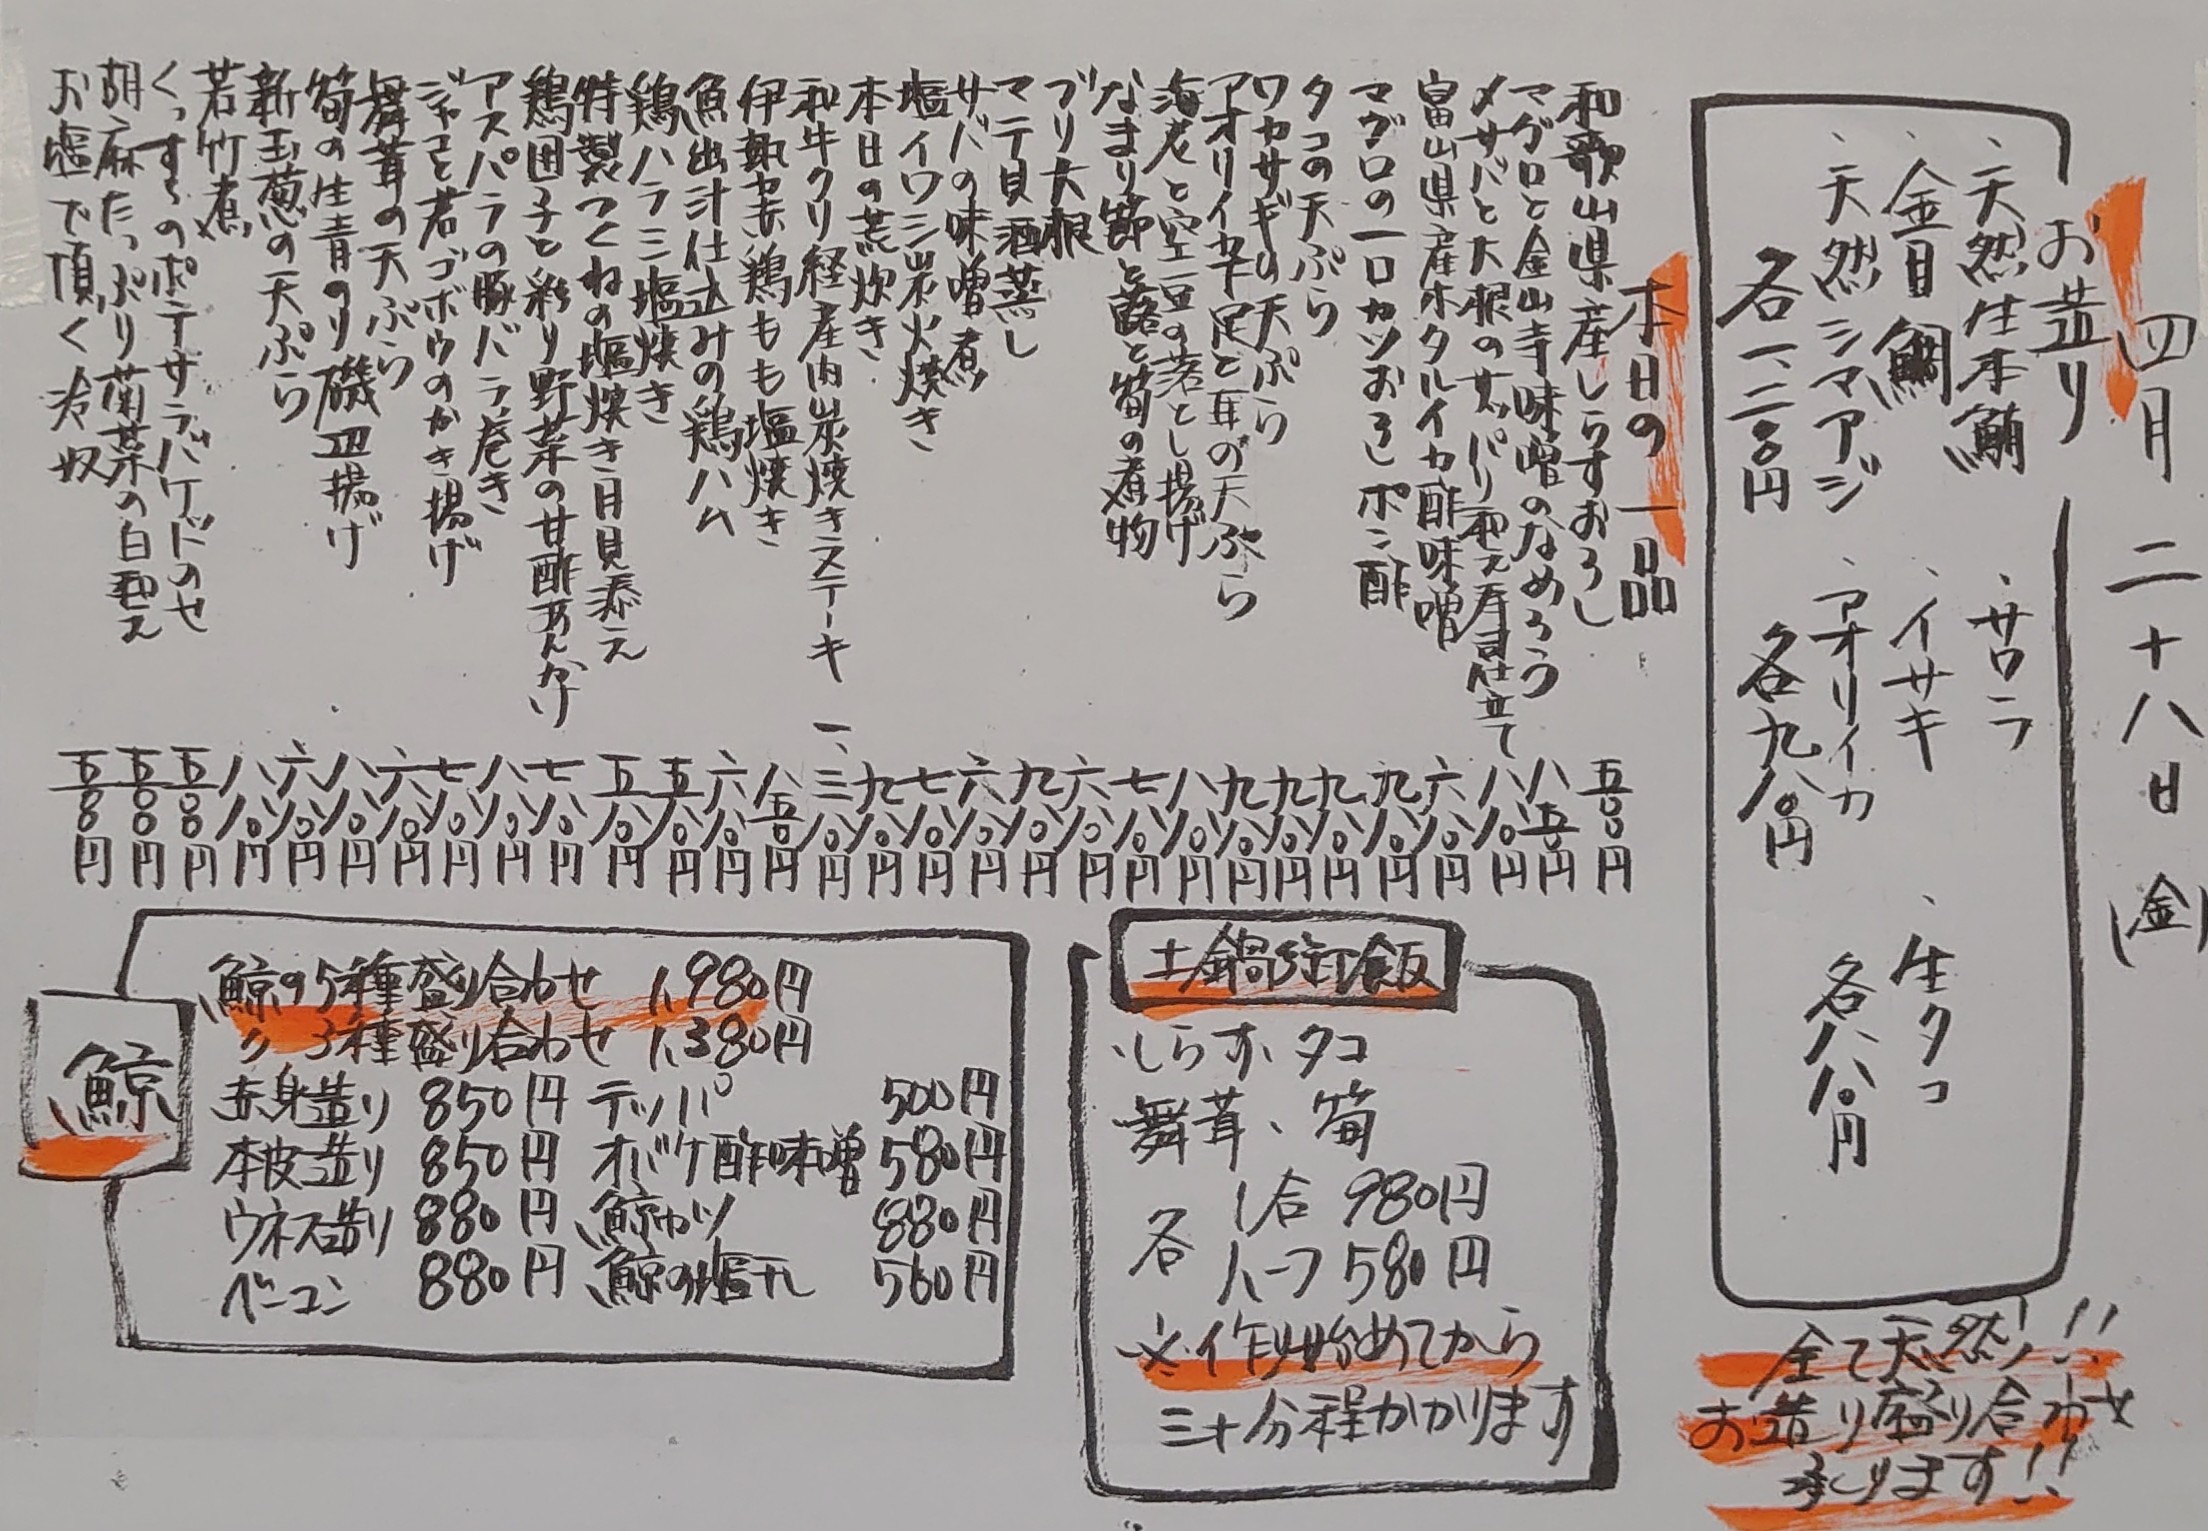 四月二十八日(金)
お造り
、天然生本鮪 、サワラ
、金目鯛 、イサキ 、生タコ
、天然シマアジ 、アオリイカ 各八八〇円
各一、二八〇円 各九八〇円
全て天然!!
お造り盛り合わせ
承ります!!
本日の一品
和歌山県産しらすおろし 五〇〇円
マグロと金山寺味噌のなめろう 八五〇円
〆サバと大根のサッパリ和え寿司仕立て 八八〇円
富山県産ホタルイカ酢味噌 六八〇円
マグロの一口カツおろしポン酢 九八〇円
タコの天ぷら 九八〇円
ワカサギの天ぷら 九八〇円
アオリイカ下足と耳の天ぷら 九八〇円
海老と空豆の落とし揚げ 八八〇円
なまり節と蕗と筍の煮物 七八〇円
ブリ大根 六八〇円
マテ貝酒蒸し 九八〇円
サバの味噌煮 六八〇円
塩イワシ炭火焼き 七八〇円
本日の荒炊き 九八〇円
和牛クリ経産肉炭焼きステーキ 一、三八〇円
伊勢赤鶏もも塩焼き 八五〇円
魚出汁仕込みの鶏ハム 六八〇円
鶏ハラミ塩焼き 五八〇円
特製つくねの塩焼き月見添え 五八〇円
鶏団子と彩り野菜の甘酢あんかけ 七八〇円
アスパラの豚バラ巻き 八八〇円
ジャコと若ゴボウのかき揚げ 七八〇円
舞茸の天ぷら 六八〇円
筍の生青のり磯辺揚げ 八八〇円
新玉葱の天ぷら 六八〇円
若竹煮 八八〇円
ポテサラバケドのせ 五〇〇円
胡麻たっぷり菊菜の白和え 五〇〇円
お塩で頂く冷奴 五〇〇円
土鍋御飯
しらす、タコ
舞茸、筍
各 1合 980円
ハーフ 580円
※作り始めてから
三十分程かかります
鯨
鯨の5種盛り合わせ 1,980円
〃 3種盛り合わせ 1,380円
赤身造り 850円 テッパ 500円
本皮造り 850円 オバケ酢味噌 580円
ウネス造り 880円 鯨カツ 880円
ベーコン 880円 鯨の塩干し 560円